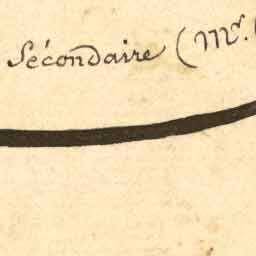 Sécondaire (Mr.